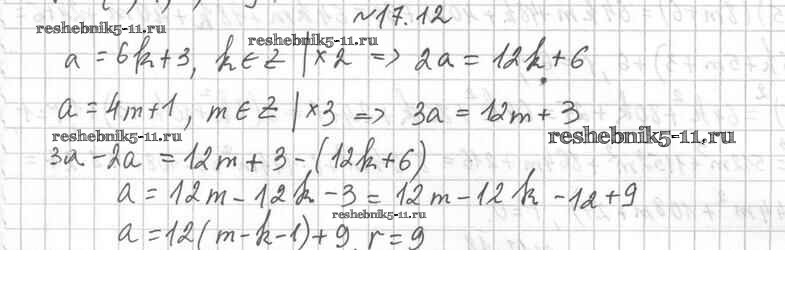 №17.12
reshebnik5-11.ru
reshebnik5-11.ru
a = 6k+3, k∈Z |×2 => 2a = 12k+6
a = 4m+1, m∈Z |×3 => 3a = 12m+3
reshebnik5-11.ru
reshebnik5-11.ru
3a-2a = 12m+3-(12k+6)
a = 12m-12k-3 = 12m-12k-12+9
reshebnik5-11.ru
a = 12(m-k-1)+9, r=9